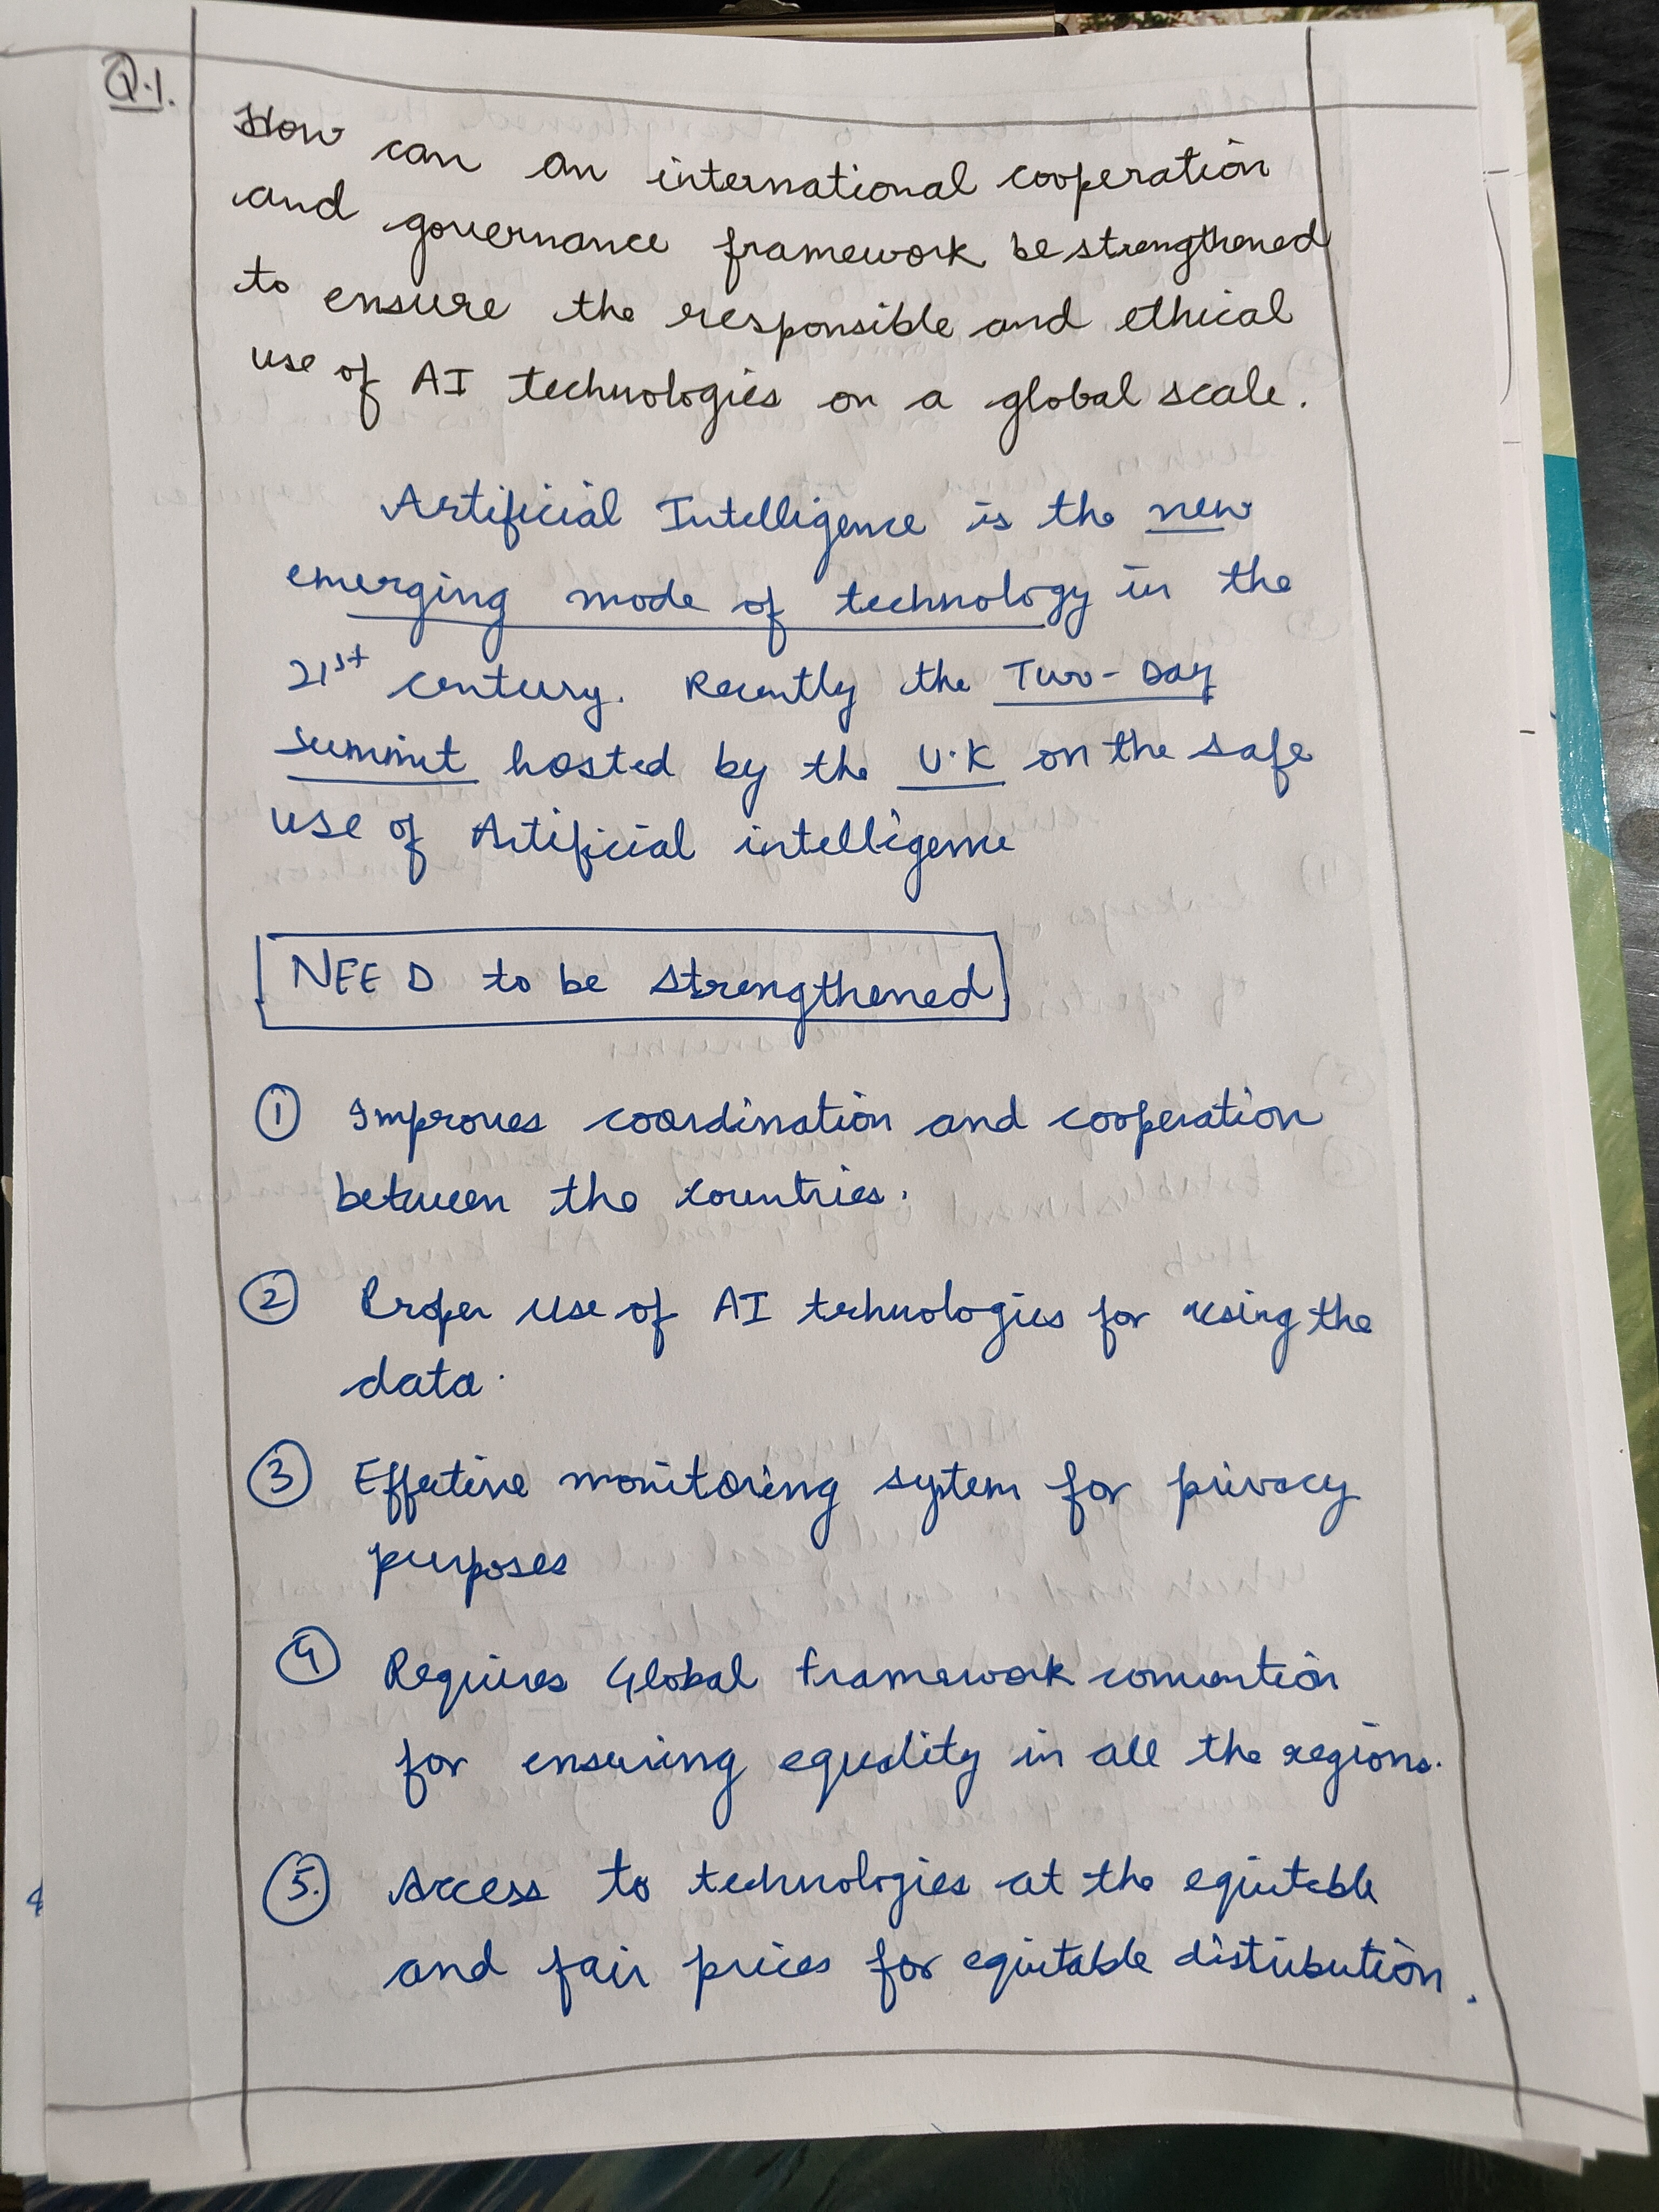 Q.1.
How can an international cooperation
and governance framework be strengthened
to ensure the responsible and ethical
use of AI technologies on a global scale.
Artificial Intelligence is the new
emerging mode of technology in the
21st century. Recently the Two-Day
summit hosted by the U.K on the safe
use of Artificial intelligence
NEED to be strengthened
① Improves coordination and cooperation
between the countries.
② Proper use of AI technologies for using the
data.
③ Effective monitoring system for privacy
purposes
④ Requires Global framework convention
for ensuring equality in all the regions.
⑤ Access to technologies at the equitable
and fair prices for equitable distribution.